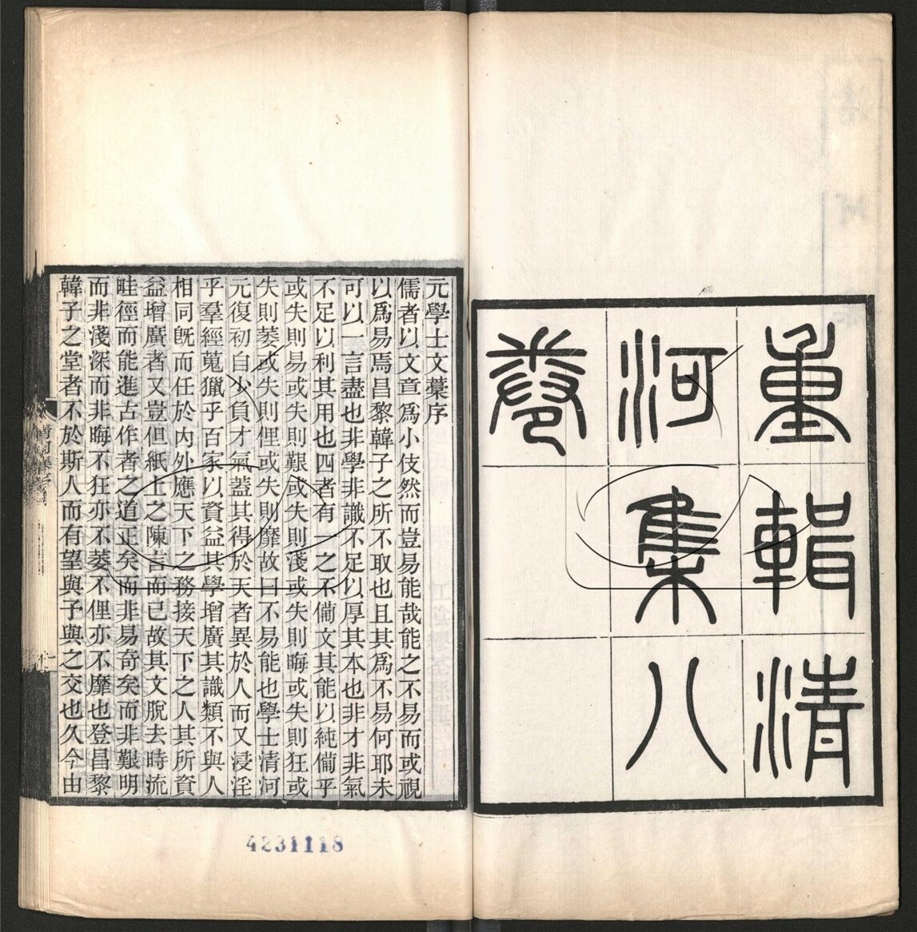 重輯清
河集八
卷
元學士文藁序
儒者以文章爲小伎然而豈易能哉能之不易而或視
以爲易焉昌黎韓子之所不取也且其爲不易何耶未
可以一言盡也非學非識不足以厚其本也非才非氣
不足以利其用也四者有一之不備文其能以純備乎
或失則易或失則艱或失則淺或失則晦或失則狂或
失則萎或失則俚或失則靡故曰不易能也學士清河
元復初自少負才氣蓋其得於天者異於人而又浸淫
乎羣經蒐獵乎百家以資益其學增廣其識類不與人
相同旣而任於內外應天下之務接天下之人其所資
益增廣者又豈但紙上之陳言而已故其文脫去時流
畦徑而能進古作者之道正矣而非易奇矣而非艱明
而非淺深而非晦不狂亦不萎不俚亦不靡也登昌黎
韓子之堂者不於斯人而有望與子與之交也久今由
4231118